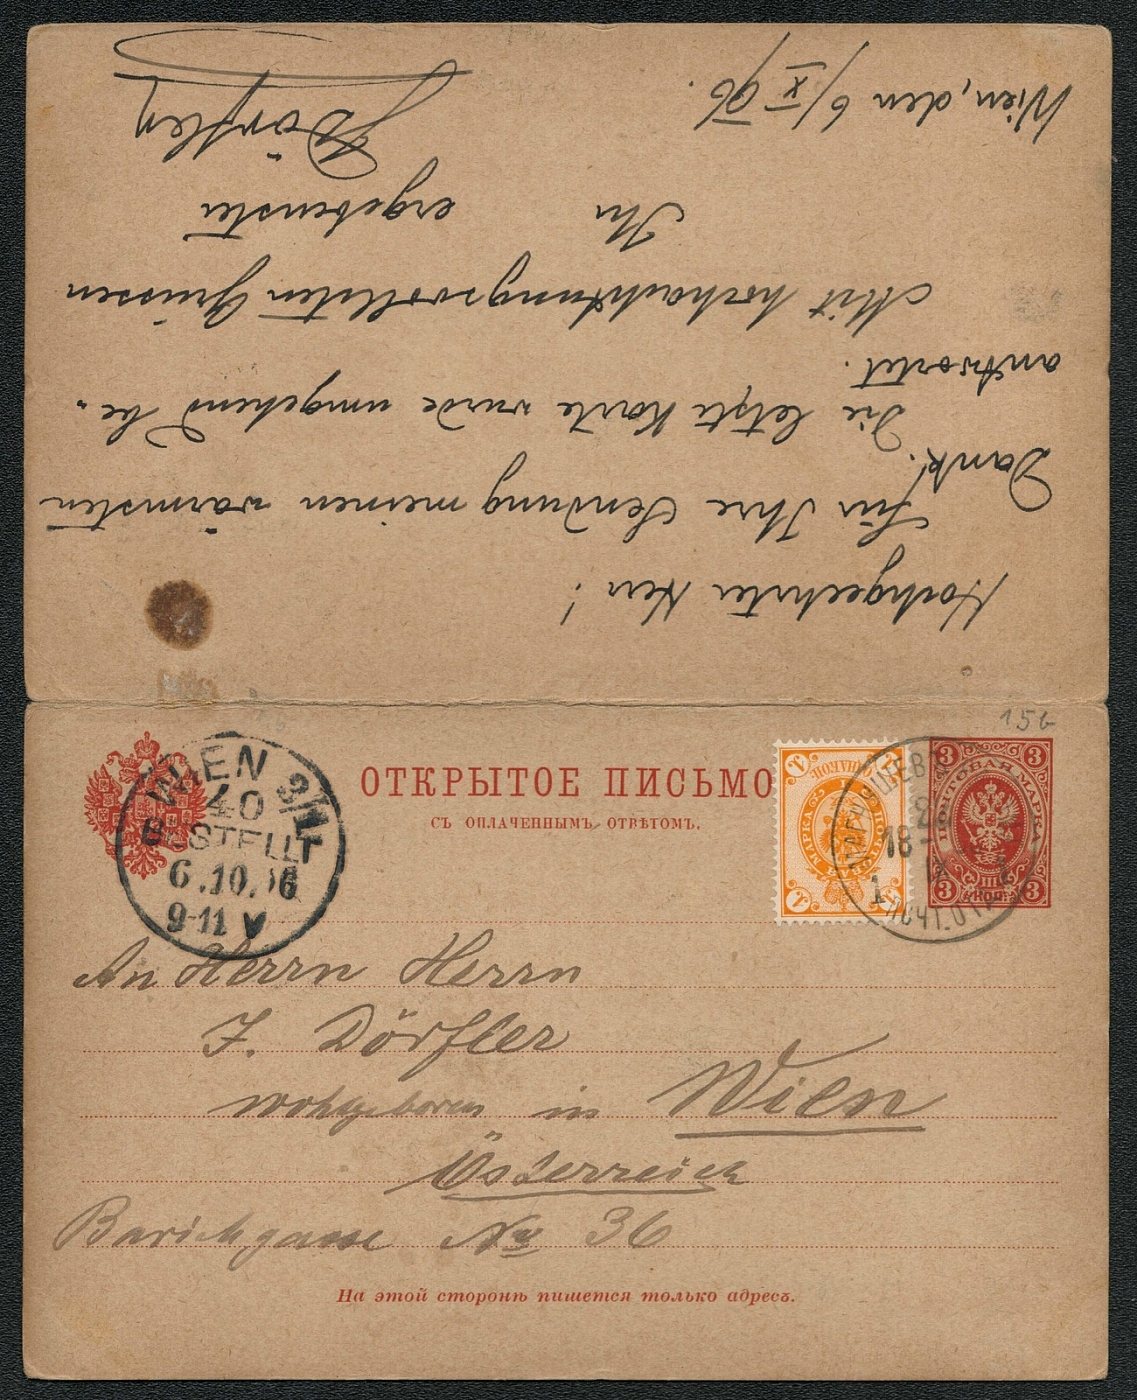 Hochgeehrter Herr!
Für Ihre Sendung meinen wärmsten
Dank! Die letzte Karte wurde umgehend be-
antwortet.
Mit hochachtungsvollsten Grüssen
Ihr
ergebenster
Dörfler
Wien, den 6/X 96.
15 6
ОТКРЫТОЕ ПИСЬМО
СЪ ОПЛАЧЕННЫМЪ ОТВѢТОМЪ.
WIEN 3/1
40
BESTELLT
6.10.96
9-11 V
ПОЧТОВАЯ МАРКА
1 1
ПОЧТОВАЯ МАРКА
3 3
3 3
КОП.
18
IX
1
ПОЧТ.
An Herrn Herrn
J. Dörfler
wohlgeboren in Wien
Österreich
Barichgasse No 36
На этой сторонѣ пишется только адресъ.